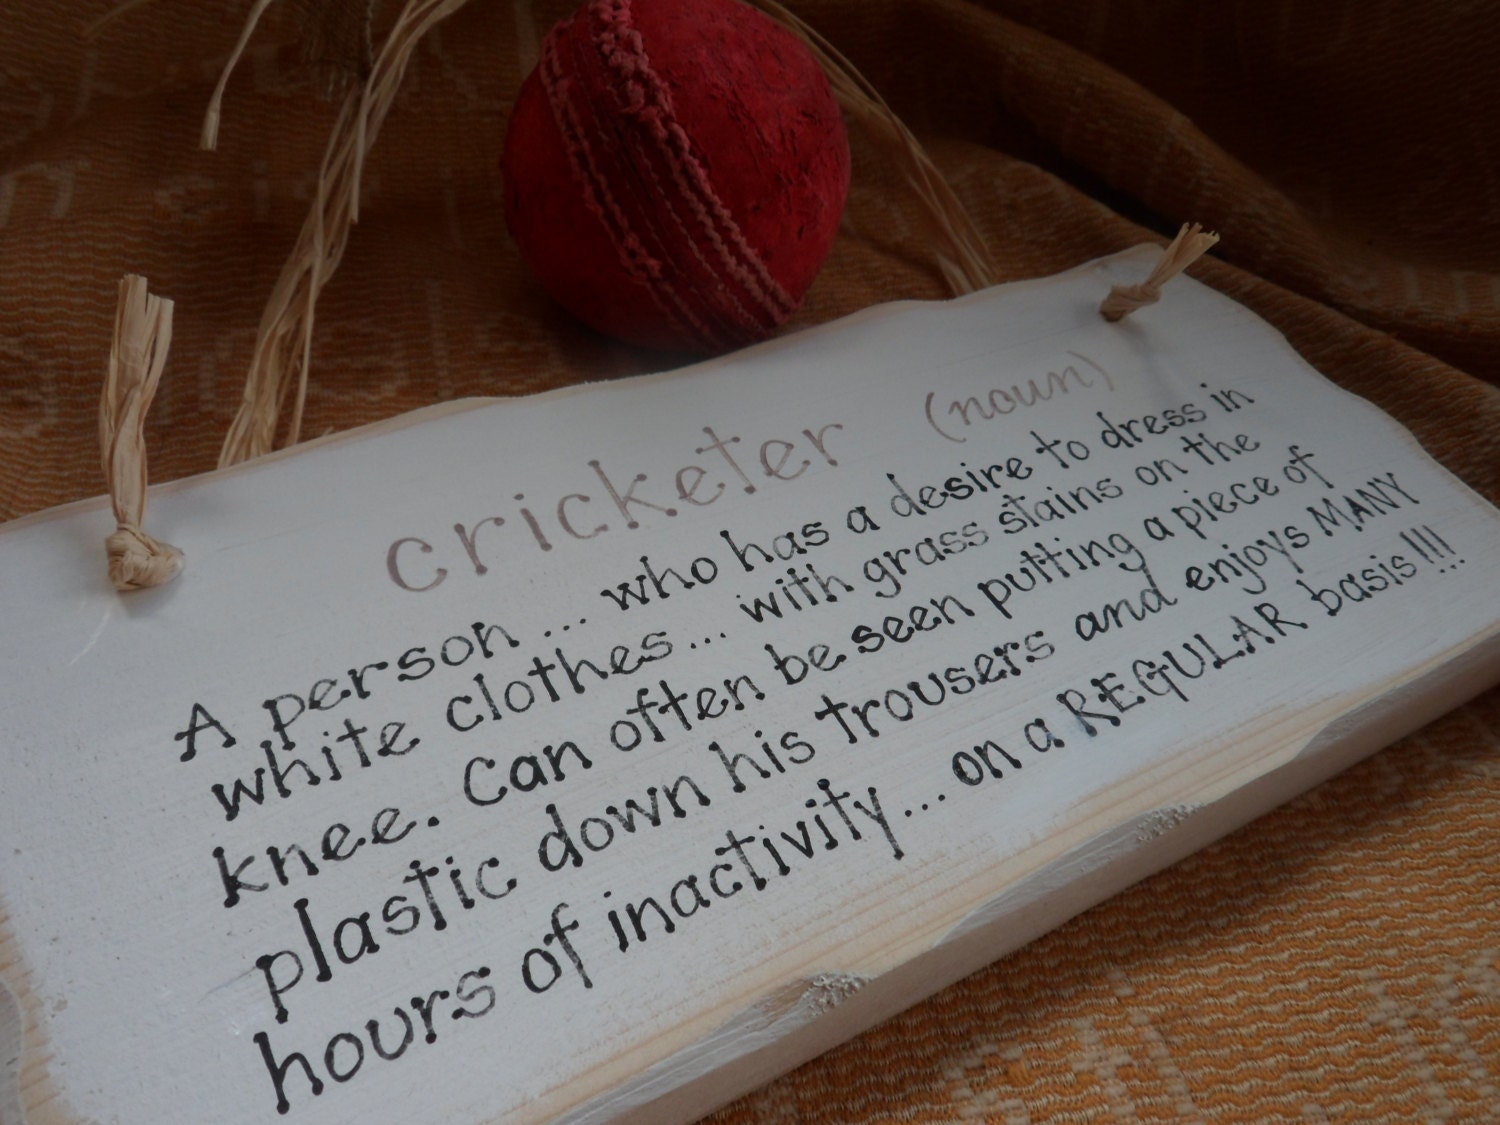 cricketer (noun)
A person... who has a desire to dress in
white clothes... with grass stains on the
knee. Can often be seen putting a piece of
plastic down his trousers and enjoys MANY
hours of inactivity... on a REGULAR basis!!!!